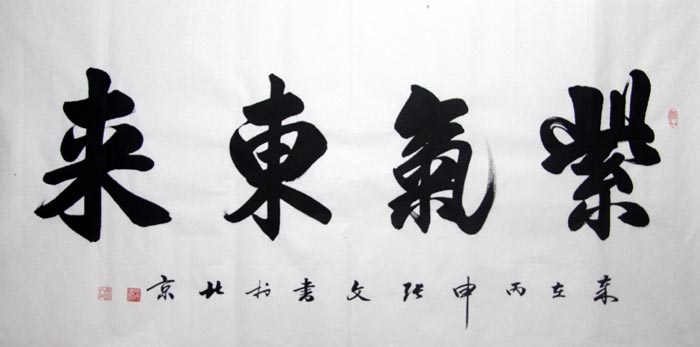 紫氣東来
岁在丙申张文書於北京